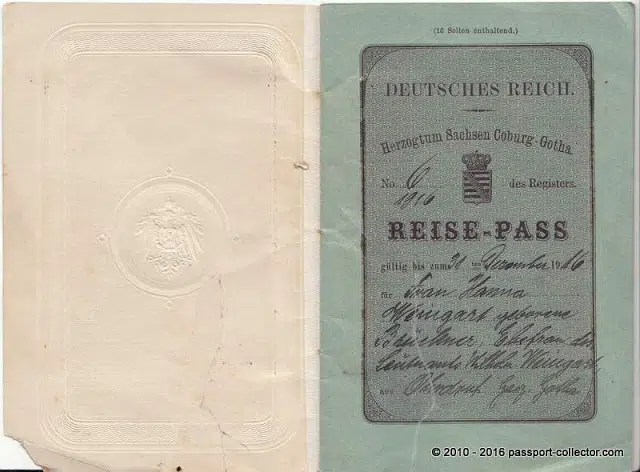 (16 Seiten enthaltend.)
DEUTSCHES REICH.
Herzogtum Sachsen Coburg-Gotha.
No. 6 des Registers.
1916
REISE-PASS
gültig bis zum 31 ten Dezember 1916
für Frau Hanna
Weingart geborene
Ehefrau des
Leutnants Wilhelm Weingart
aus Ohrdruf Gotha
© 2010 - 2016 passport-collector.com